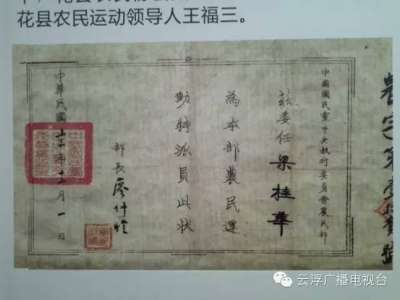 花县农民运动领导人王福三。
農字第
中國國民黨中央執行委員會農民部
茲委任 梁桂華
為本部農民運
動特派員此狀
部長 廖仲愷
中華民國十 年十 月一日
云浮广播电视台